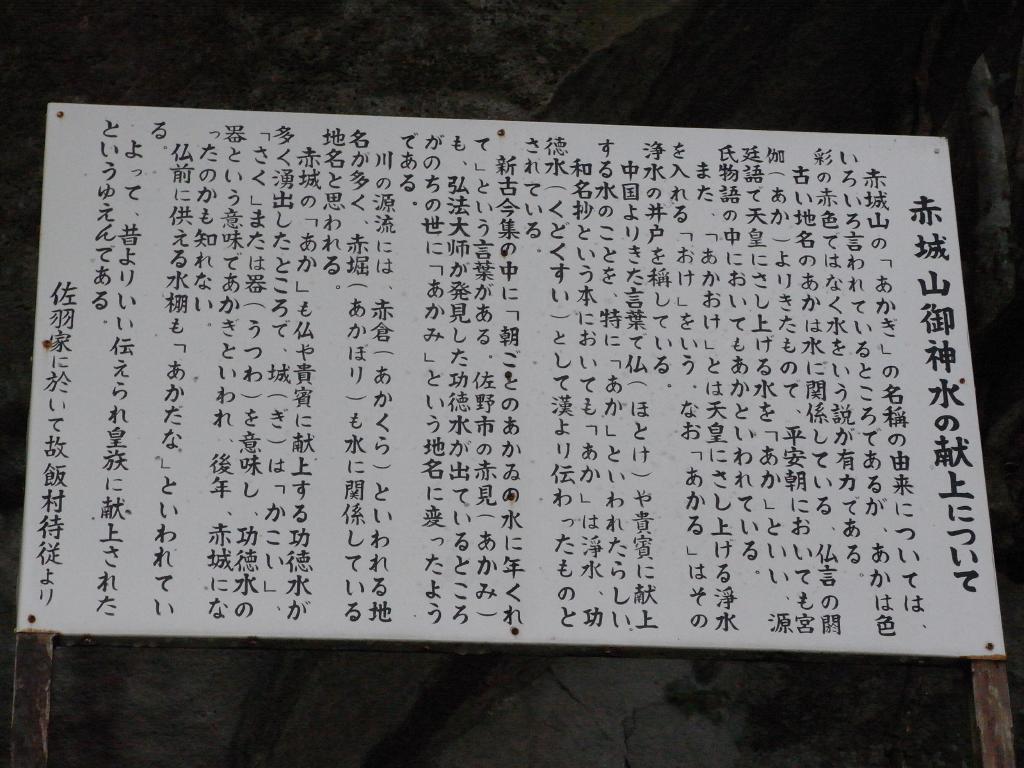 赤城山御神水の献上について
赤城山の「あかぎ」の名稱の由来については、
いろいろ言われているところであるが、あかは色
彩の赤色ではなく水をいう説が有力である。
古い地名のあかは水に関係している、仏言の閼
伽(あか)よりきたもので、平安朝においても宮
廷語で天皇にさし上げる水を「あか」といい、源
氏物語の中においてもあかといわれている。
また、「あかおけ」とは天皇にさし上げる淨水
を入れる「おけ」をいう.なお「あかる」はその
浄水の井戸を稱している。
中国よりきた言葉で仏(ほとけ)や貴賓に献上
する水のことを、特に「あか」といわれたらしい
和名抄という本においても「あか」は淨水、功
徳水(くどくすい)として漢より伝わったものと
されている。
新古今集の中に「朝ごとのあかゐの水に年くれ
て」という言葉がある。佐野市の赤見(あかみ)
も、弘法大师が発見した功徳水が出ているところ
がのちの世に「あかみ」という地名に変ったよう
である。
川の源流には、赤倉(あかくら)といわれる地
名が多く、赤堀(あかぼり)も水に関係している
地名と思われる。
赤城の「あか」も仏や貴賓に献上する功徳水が
多く湧出したところで、城(ぎ)は「かこい」、
「さく」または器(うつわ)を意味し、功徳水の
器という意味であかぎといわれ、後年、赤城にな
ったのかも知れない。
仏前に供える水棚も「あかだな」といわれてい
る。
よって、昔よりいい伝えられ皇族に献上された
というゆえんである。
佐羽家に於いて故飯村待従より